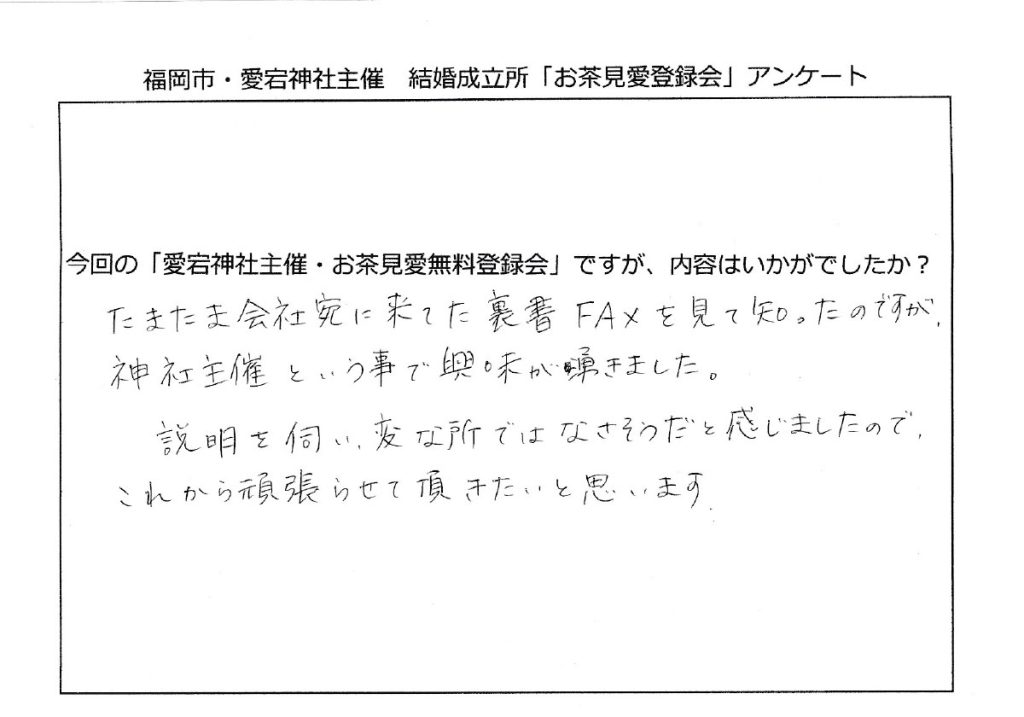 福岡市・愛宕神社主催　結婚成立所「お茶見愛登録会」アンケート
今回の「愛宕神社主催・お茶見愛無料登録会」ですが、内容はいかがでしたか？
たまたま会社宛に来てた裏書FAXを見て知ったのですが、
神社主催という事で興味が湧きました。
説明を伺い、変な所ではなさそうだと感じましたので、
これから頑張らせて頂きたいと思います。